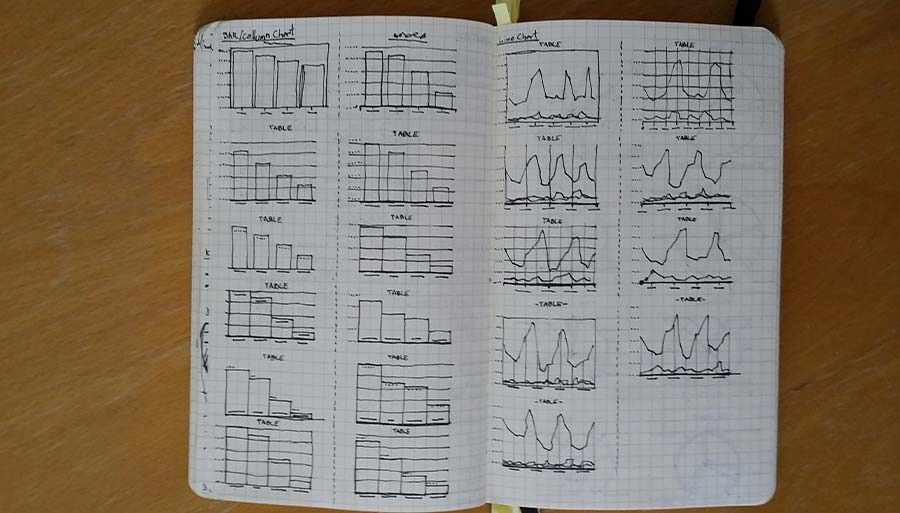 BAR/Collumn Chart
TABLE
TABLE
TABLE
TABLE
TABLE
TABLE
TABLE
TABLE
TABLE
3.
Line Chart
TABLE
TABLE
TABLE
TABLE
TABLE
TABLE
-TABLE-
-TABLE-
-TABLE-